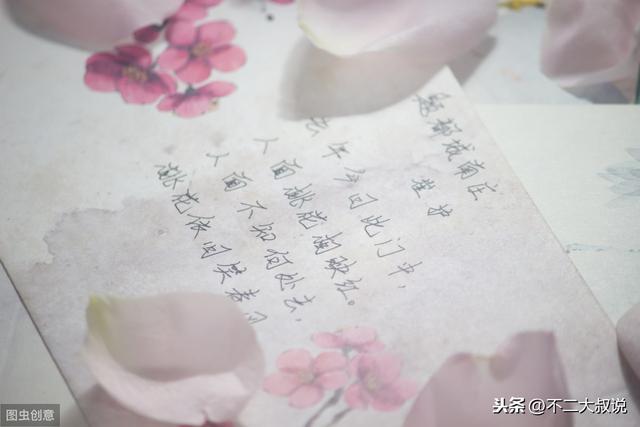 题都城南庄
崔护
去年今日此门中，
人面桃花相映红。
人面不知何处去，
桃花依旧笑春风
图虫创意
头条 @不二大叔说